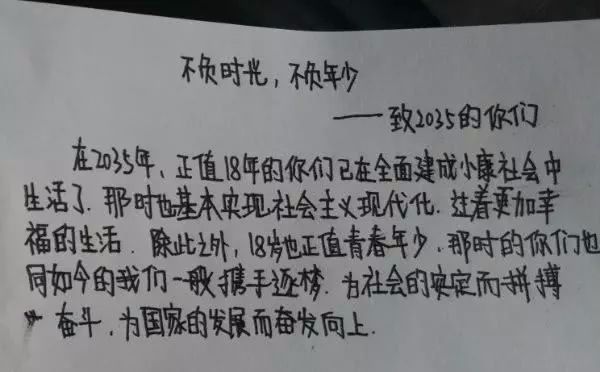 不负时光，不负年少
——致2035的你们
在2035年，正值18年的你们已在全面建成小康社会中
生活了．那时也基本实现社会主义现代化．过着更加幸
福的生活．除此之外，18岁也正值青春年少．那时的你们也
同如今的我们一般携手逐梦．为社会的安定而拼搏
奋斗．为国家的发展而奋发向上．